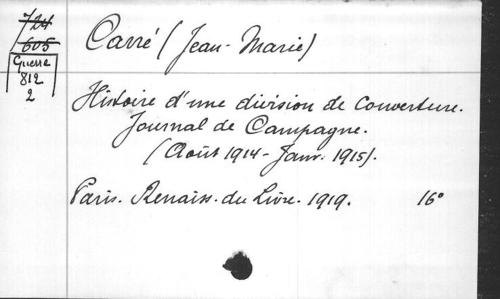 724
605
Guerre
812
2
Carré (Jean-Marie)
Histoire d'une division de Couverture.
Journal de Campagne.
(Août 1914 - Janv. 1915).
Paris. Renaiss. du Livre. 1919. 16°